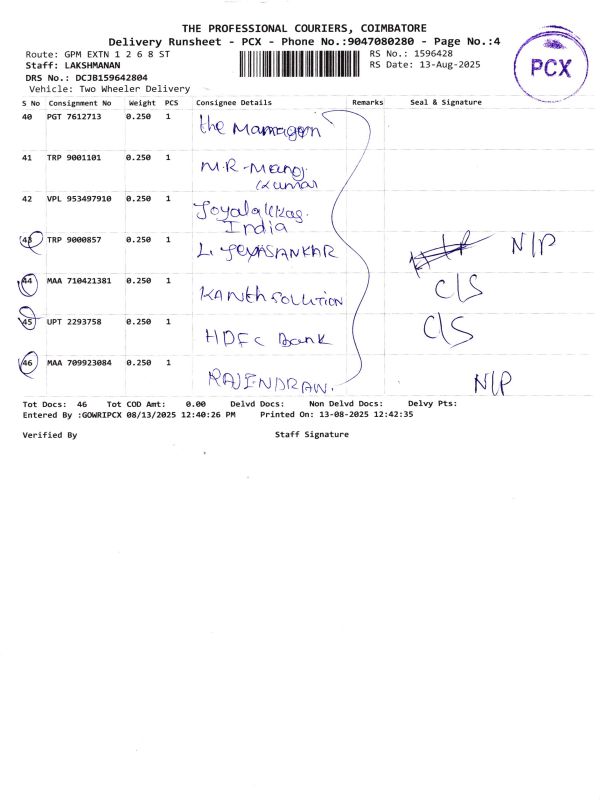 THE PROFESSIONAL COURIERS, COIMBATORE
Delivery Runsheet - PCX - Phone No.:9047080280 - Page No.:4
Route: GPM EXTN 1 2 6 8 ST RS No.: 1596428
Staff: LAKSHMANAN RS Date: 13-Aug-2025
PCX
DRS No.: DCJB159642804
Vehicle: Two Wheeler Delivery
S No Consignment No Weight PCS Consignee Details Remarks Seal & Signature
40 PGT 7612713 0.250 1 the
41 TRP 9001101 0.250 1 M.R-Manoj
Kumar
42 VPL 953497910 0.250 1 Joyalukkas.
India
43 TRP 9000857 0.250 1 L. JEYASANKAR N/P
44 MAA 710421381 0.250 1 KANth SOLUTION C/S
45 UPT 2293758 0.250 1 HDFC Bank C/S
46 MAA 709923084 0.250 1 RAJENDRAN. N/P
Tot Docs: 46 Tot COD Amt: 0.00 Delvd Docs: Non Delvd Docs: Delvy Pts:
Entered By :GOWRIPCX 08/13/2025 12:40:26 PM Printed On: 13-08-2025 12:42:35
Verified By Staff Signature